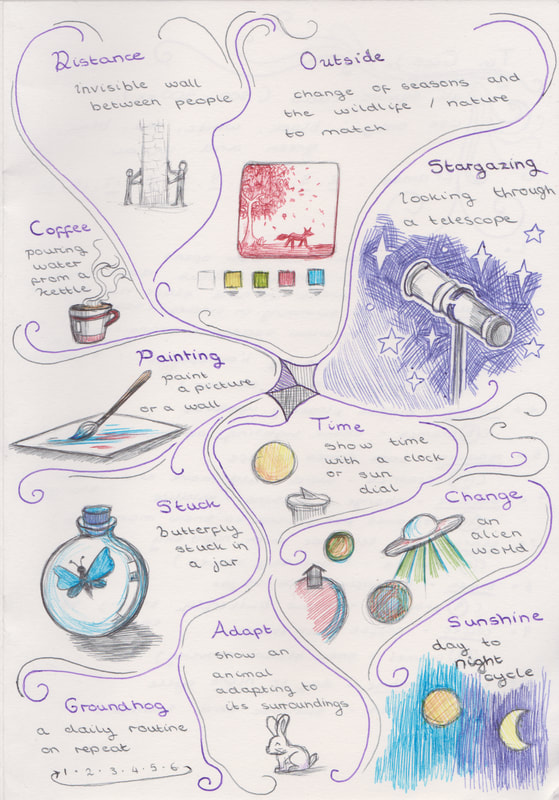 Distance
Invisible wall
between people
Outside
change of seasons and
the wildlife / nature
to match
Stargazing
looking through
a telescope
Coffee
pouring
water
from a
kettle
Painting
paint
a picture
or a wall
Time
show time
with a clock
or sun
dial
Stuck
butterfly
stuck in
a jar
Change
an
alien
world
Adapt
show an
animal
adapting to
its surroundings
Sunshine
day to
night
cycle
Groundhog
a daily routine
on repeat
1 · 2 · 3 · 4 · 5 · 6